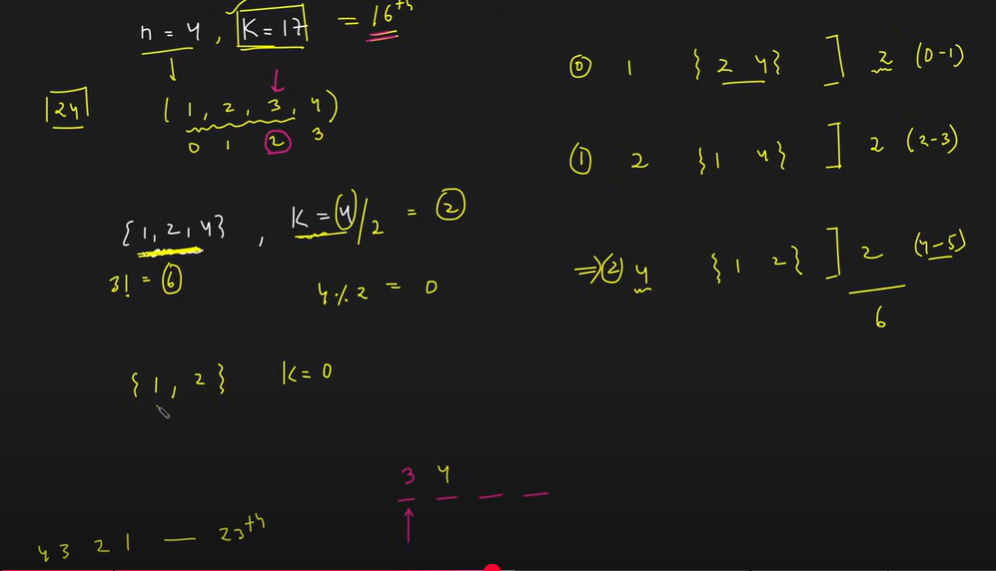 n = 4 , K = 17 = 16th
|24|
( 1, 2, 3, 4 )
0 1 2 3
{ 1, 2, 4 } , K = 4/2 = 2
3! = 6
4 % 2 = 0
{ 1, 2 } K = 0
3 4 _ _
4 3 2 1 — 23th
(0) 1 { 2 4 } ] 2 (0-1)
(1) 2 { 1 4 } ] 2 (2-3)
⇒ (2) 4 { 1 2 } ] 2 (4-5)
6